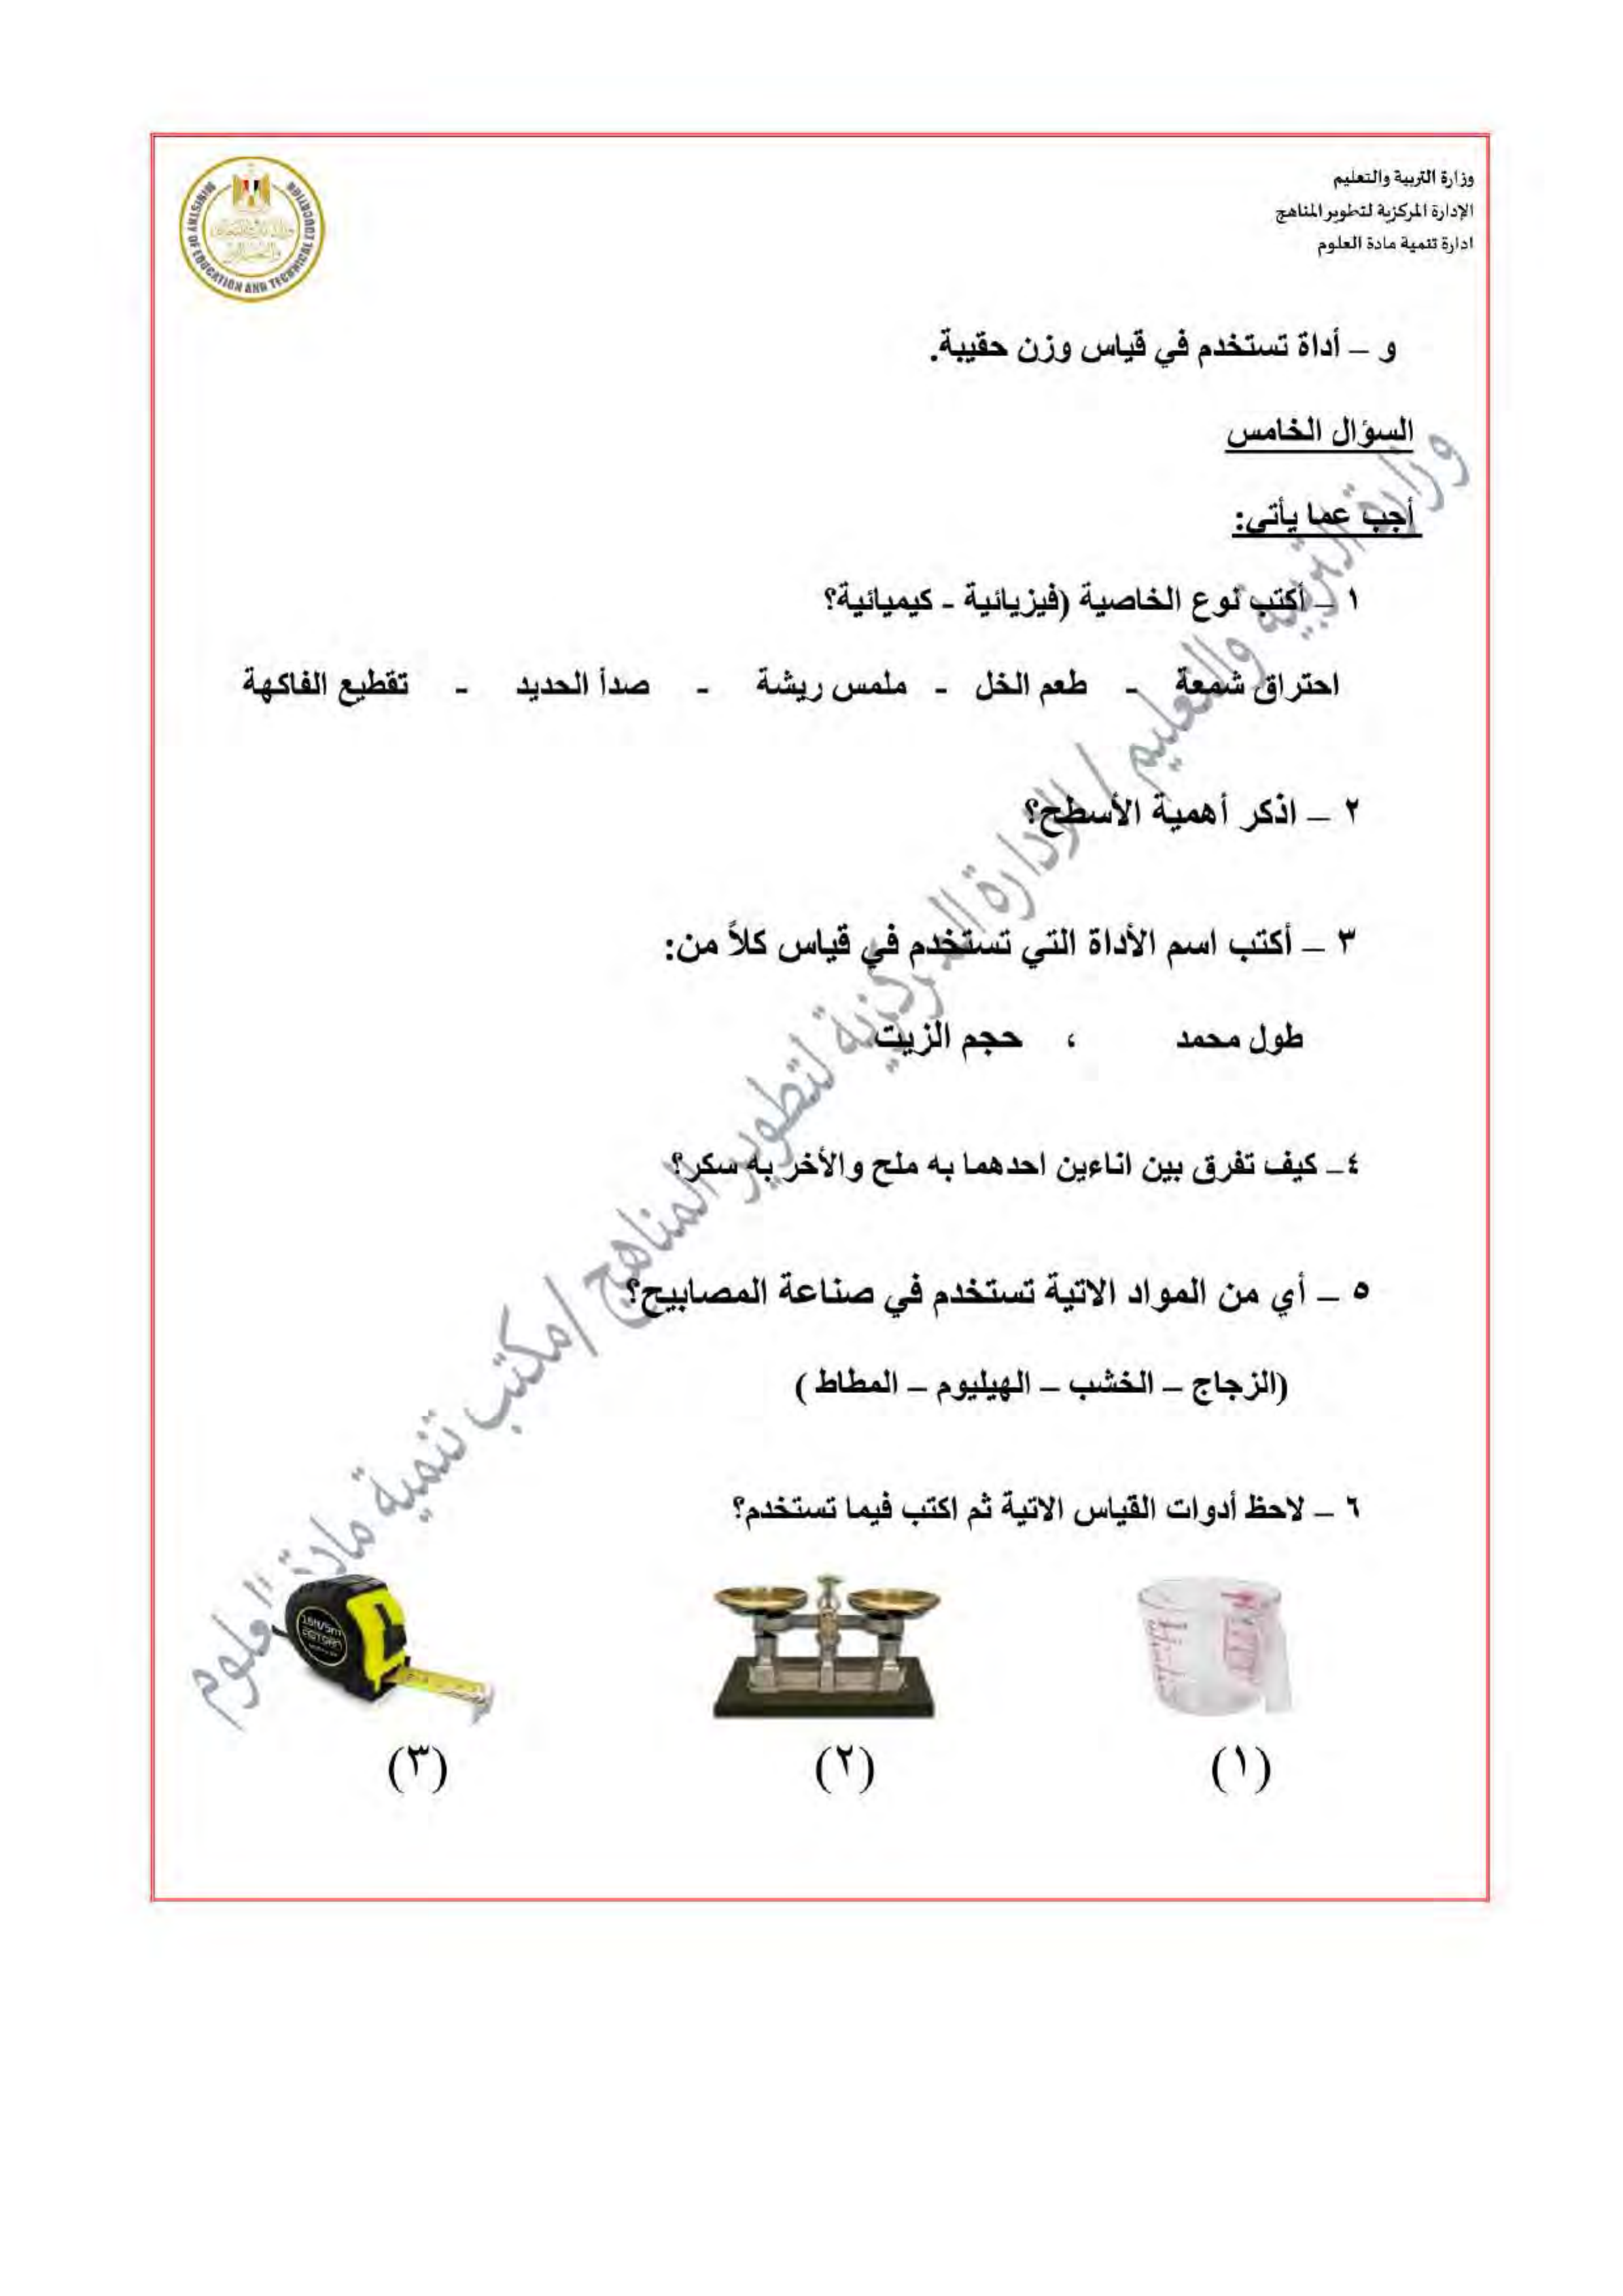 وزارة التربية والتعليم
الإدارة المركزية لتطوير المناهج
ادارة تنمية مادة العلوم
MINISTRY OF EDUCATION AND TECHNICAL EDUCATION
و – أداة تستخدم في قياس وزن حقيبة.
السؤال الخامس
أجب عما يأتي:
١ – أكتب نوع الخاصية (فيزيائية - كيميائية؟
احتراق شمعة - طعم الخل - ملمس ريشة - صدأ الحديد - تقطيع الفاكهة
٢ – اذكر أهمية الأسطح؟
٣ – أكتب اسم الأداة التي تستخدم في قياس كلاً من:
طول محمد ، حجم الزيت
٤– كيف تفرق بين اناءين احدهما به ملح والأخر به سكر؟
٥ – أي من المواد الاتية تستخدم في صناعة المصابيح؟
(الزجاج – الخشب – الهيليوم – المطاط )
٦ – لاحظ أدوات القياس الاتية ثم اكتب فيما تستخدم؟
(١) (٢) (٣)
وزارة التربية والتعليم / الادارة المركزية لتطوير المناهج / مكتب تنمية مادة العلوم